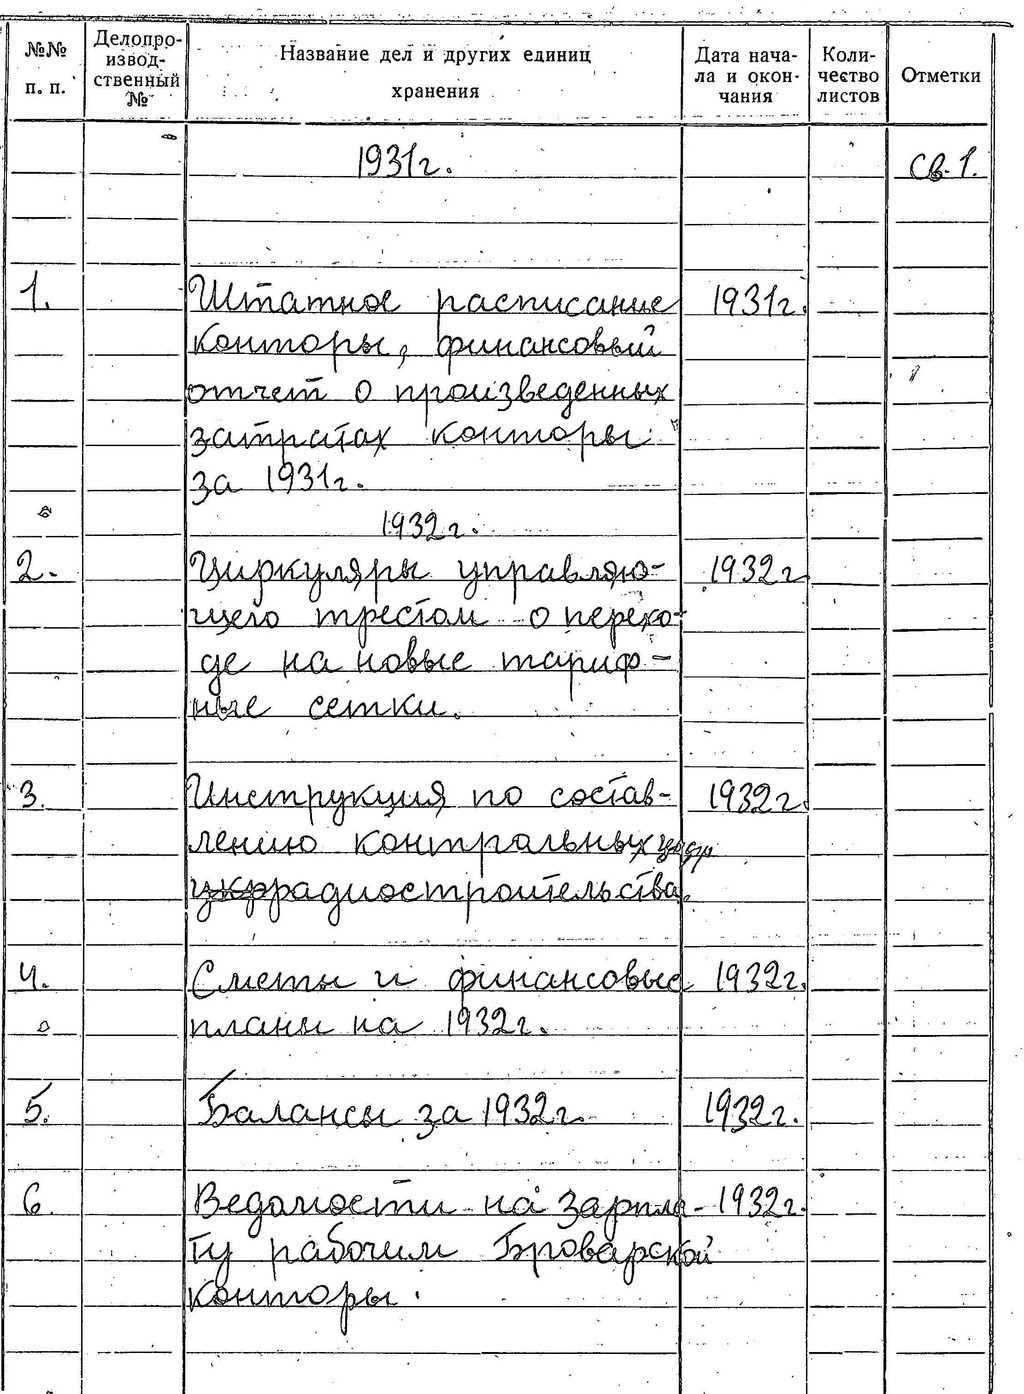 №№ п. п.
Делопро-
извод-
ственный
№
Название дел и других единиц
хранения
Дата нача-
ла и окон-
чания
Коли-
чество
листов
Отметки
1931г. Св. 1.
1. Штатное расписание 1931г.
конторы, финансовый
отчет о произведенных
затратах конторы
за 1931г.
1932г.
2. Циркуляры управляю- 1932г
щего трестом о перехо-
де на новые тариф-
ные сетки.
3. Инструкция по состав- 1932г.
лению контрольных цифр
радиостроительства.
4. Сметы и финансовые 1932г.
планы на 1932г.
5. Балансы за 1932г. 1932г.
6. Ведомости на зарпла- 1932г.
ту рабочим Броварской
конторы.